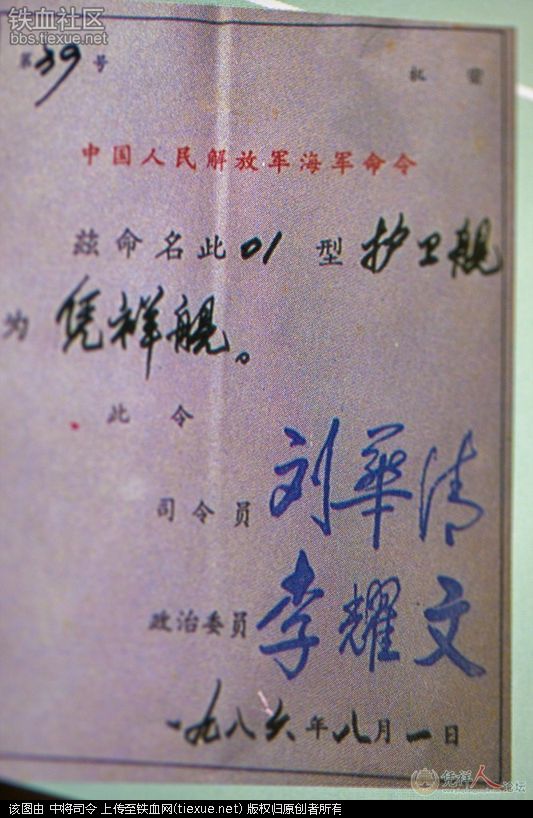 铁血社区
bbs.tiexue.net
第39号
机密
中国人民解放军海军命令
兹命名此01型护卫舰
为凭祥舰。
此令
司令员 刘华清
政治委员 李耀文
一九八六年八月一日
凭祥人论坛
该图由 中将司令 上传至铁血网(tiexue.net) 版权归原创者所有